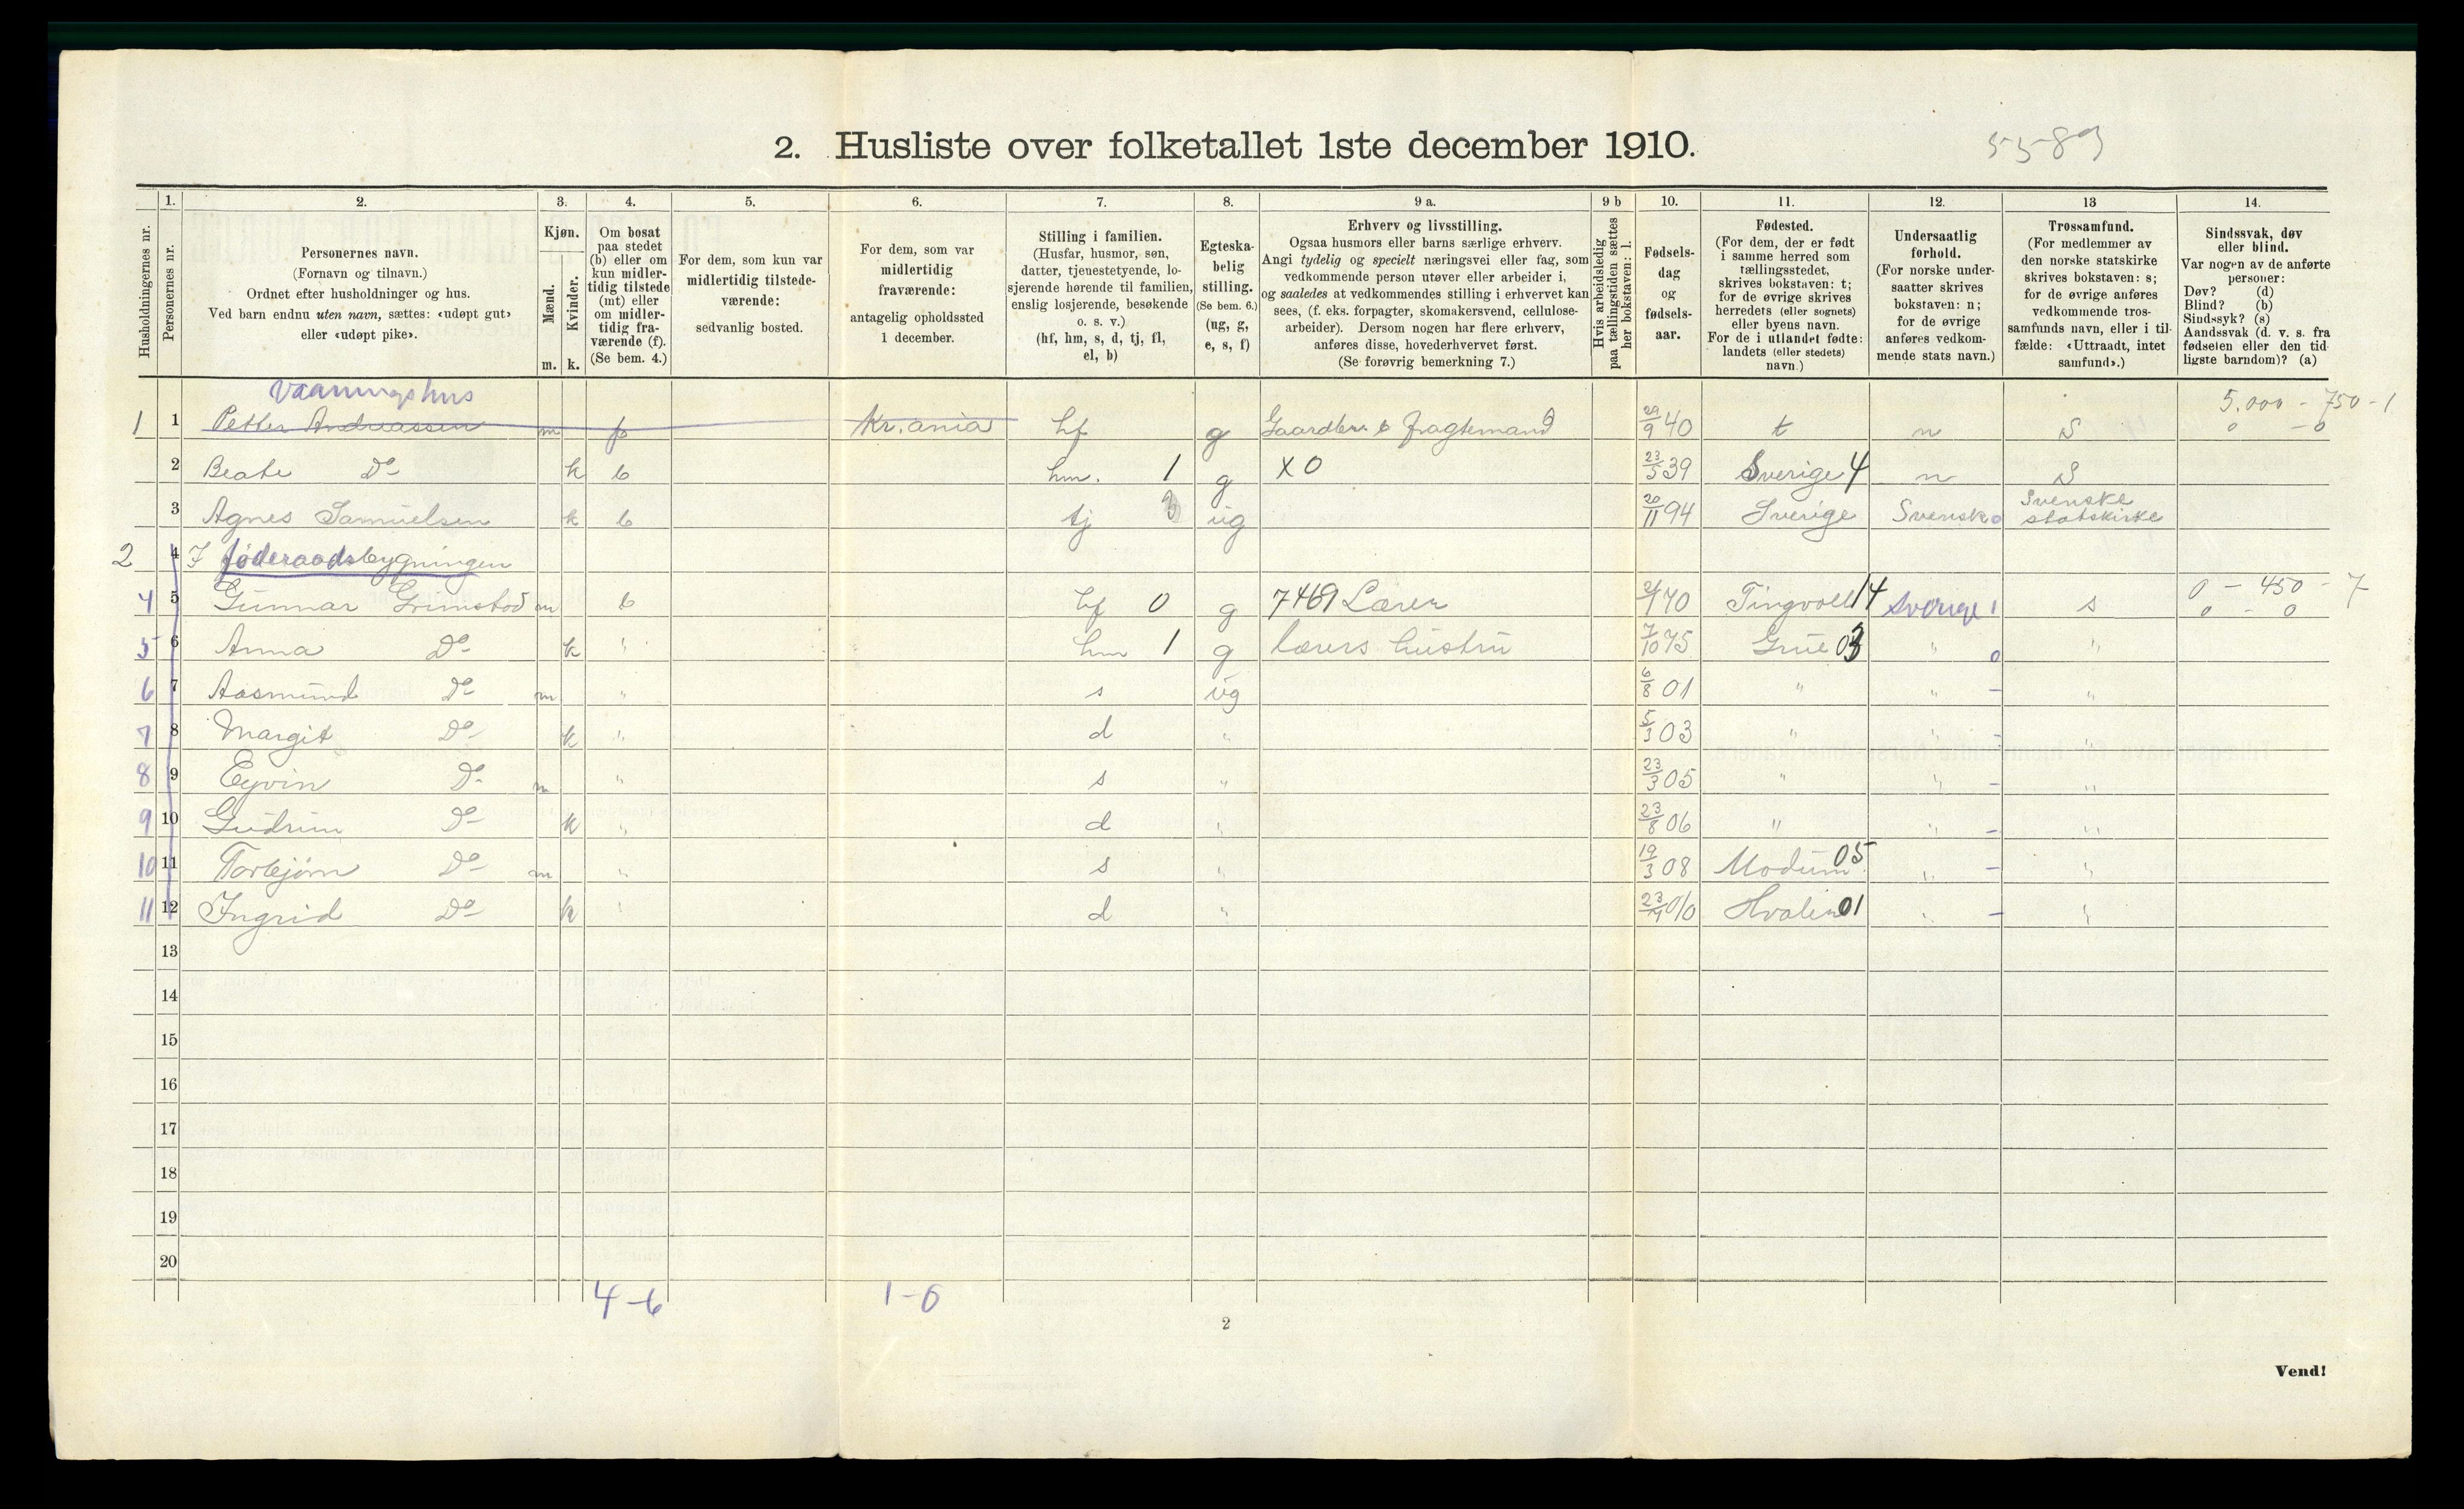 2. Husliste over folketallet 1ste december 1910.
55-89
Husholdningernes nr.
1.
Personernes nr.
2.
Personernes navn.
(Fornavn og tilnavn.)
Ordnet efter husholdninger og hus.
Ved barn endnu uten navn, sættes: «udøpt gut»
eller «udøpt pike».
3.
Kjøn.
Mænd.
Kvinder.
m. k.
4.
Om bosat
paa stedet
(b) eller om
kun midler-
tidig tilstede
(mt) eller
om midler-
tidig fra-
værende (f).
(Se bem. 4.)
5.
For dem, som kun var
midlertidig tilstede-
værende:
sedvanlig bosted.
6.
For dem, som var
midlertidig
fraværende:
antagelig opholdssted
1 december.
7.
Stilling i familien.
(Husfar, husmor, søn,
datter, tjenestetyende, lo-
sjerende hørende til familien,
enslig losjerende, besøkende
o. s. v.)
(hf, hm, s, d, tj, fl,
el, b)
8.
Egteska-
belig
stilling.
(Se bem. 6.)
(ug, g,
e, s, f)
9 a.
Erhverv og livsstilling.
Ogsaa husmors eller barns særlige erhverv.
Angi tydelig og specielt næringsvei eller fag, som
vedkommende person utøver eller arbeider i,
og saaledes at vedkommendes stilling i erhvervet kan
sees, (f. eks. forpagter, skomakersvend, cellulose-
arbeider). Dersom nogen har flere erhverv,
anføres disse, hovederhvervet først.
(Se forøvrig bemerkning 7.)
9 b
Hvis arbeidsledig
paa tællingstiden sættes
her bokstaven: l.
10.
Fødsels-
dag
og
fødsels-
aar.
11.
Fødested.
(For dem, der er født
i samme herred som
tællingsstedet,
skrives bokstaven: t;
for de øvrige skrives
herredets (eller sognets)
eller byens navn.
For de i utlandet fødte:
landets (eller stedets)
navn.)
12.
Undersaatlig
forhold.
(For norske under-
saatter skrives
bokstaven: n;
for de øvrige
anføres vedkom-
mende stats navn.)
13
Trossamfund.
(For medlemmer av
den norske statskirke
skrives bokstaven: s;
for de øvrige anføres
vedkommende tros-
samfunds navn, eller i til-
fælde: «Uttraadt, intet
samfund».)
14.
Sindssvak, døv
eller blind.
Var nogen av de anførte
personer:
Døv? (d)
Blind? (b)
Sindssyk? (s)
Aandssvak (d. v. s. fra
fødselen eller den tid-
ligste barndom)? (a)
Vaaningshus
5.000 - 750 - 1
1 1 Petter Andreassen m f Kr.ania hf g Gaardbr. & fragtemand 29/9 40 t n S 0 - 0
2 Beate Do k b hm. 1 g X 0 23/5 39 Sverige 4 n S
3 Agnes Samuelsen k b tj 3 ug 20/11 94 Sverige Svensk 0 Svenske statskirke
2 4 I føderaadsbygningen
4 5 Gunnar Grimstod m b hf 0 g 7469 Lærer 2/1 70 Tingvoll 14 Sverige 1 s 0 - 450 - 7
0 - 0
5 6 Anna Do k " hm 1 g lærers hustru 7/10 75 Grue 03 " 0 "
6 7 Aasmund Do m " s ug 6/8 01 " " - "
7 8 Margit Do k " d " 5/3 03 " " - "
8 9 Eyvin Do m " s " 23/3 05 " " - "
9 10 Gudrun Do k " d " 23/8 06 " " - "
10 11 Torbjørn Do m " s " 19/3 08 Modum 05 " - "
11 12 Ingrid Do k " d " 23/4 010 Hvaler 01 " - "
13
14
15
16
17
18
19
20
4-6
1-0
2
Vend!